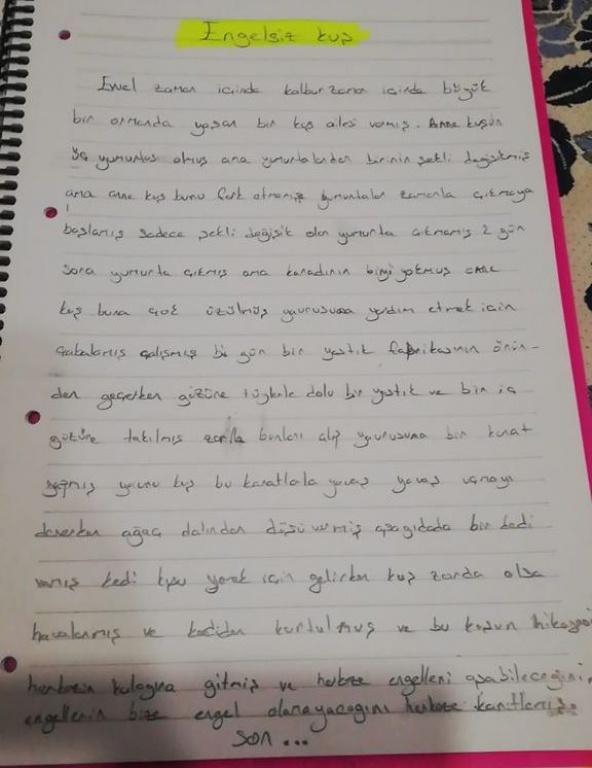 Engelsiz kuş
Evvel zaman içinde kalbur zaman içinde büyük
bir ormanda yaşan bir kuş ailesi varmış. Anne kuşun
üç yumurtası olmuş ama yumurtalardan birinin şekli değişikmiş
ama anne kuş bunu fark etmemiş yumurtalar zamanla çıkmaya
başlamış sadece şekli değişik olan yumurta çıkmamış 2 gün
sonra yumurta çıkmış ama kanadının biri yokmuş anne
kuş buna çok üzülmüş yavrusuna yardım etmek için
çabalamış çalışmış bir gün bir yastık fabrikasının önün-
den geçerken gözüne tüylerle dolu bir yastık ve bir iç
gözüne takılmış zorla bunları alıp yavrusuna bir kanat
yapmış yavru kuş bu kanatlarla yavaş yavaş uçmayı
denerken ağaç dalından düşü vermiş aşağıdada bir kedi
varmış kedi kuşu yemek için gelirken kuş zorda olsa
havalanmış ve kediden kurtulmuş ve bu kuşun hikayesi
herkesin kulağına gitmiş ve herkese engelleri aşabileceğini,
engellerin bize engel olamayacağını herkese kanıtlamış.
SON...